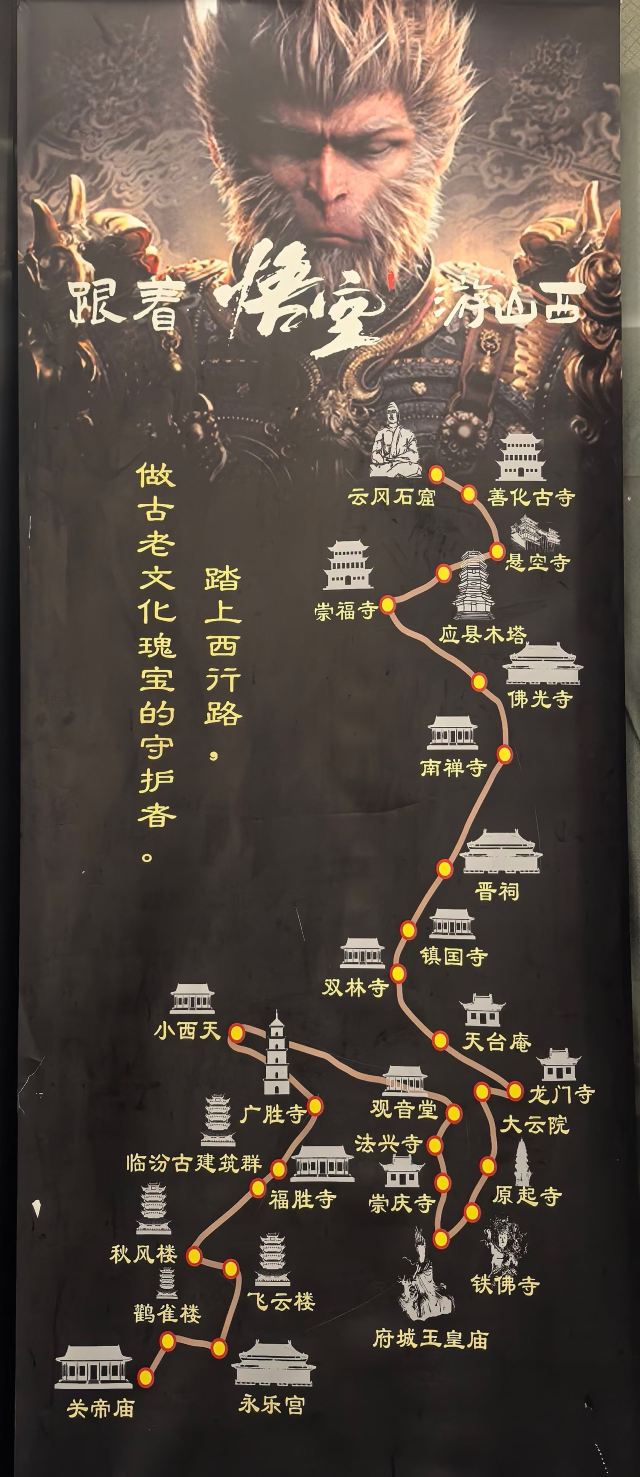 跟着悟空游山西
踏上西行路，
做古老文化瑰宝的守护者。
云冈石窟
善化古寺
悬空寺
应县木塔
崇福寺
佛光寺
南禅寺
晋祠
镇国寺
双林寺
天台庵
龙门寺
大云院
原起寺
铁佛寺
府城玉皇庙
崇庆寺
法兴寺
观音堂
小西天
广胜寺
临汾古建筑群
福胜寺
秋风楼
飞云楼
永乐宫
鹳雀楼
关帝庙